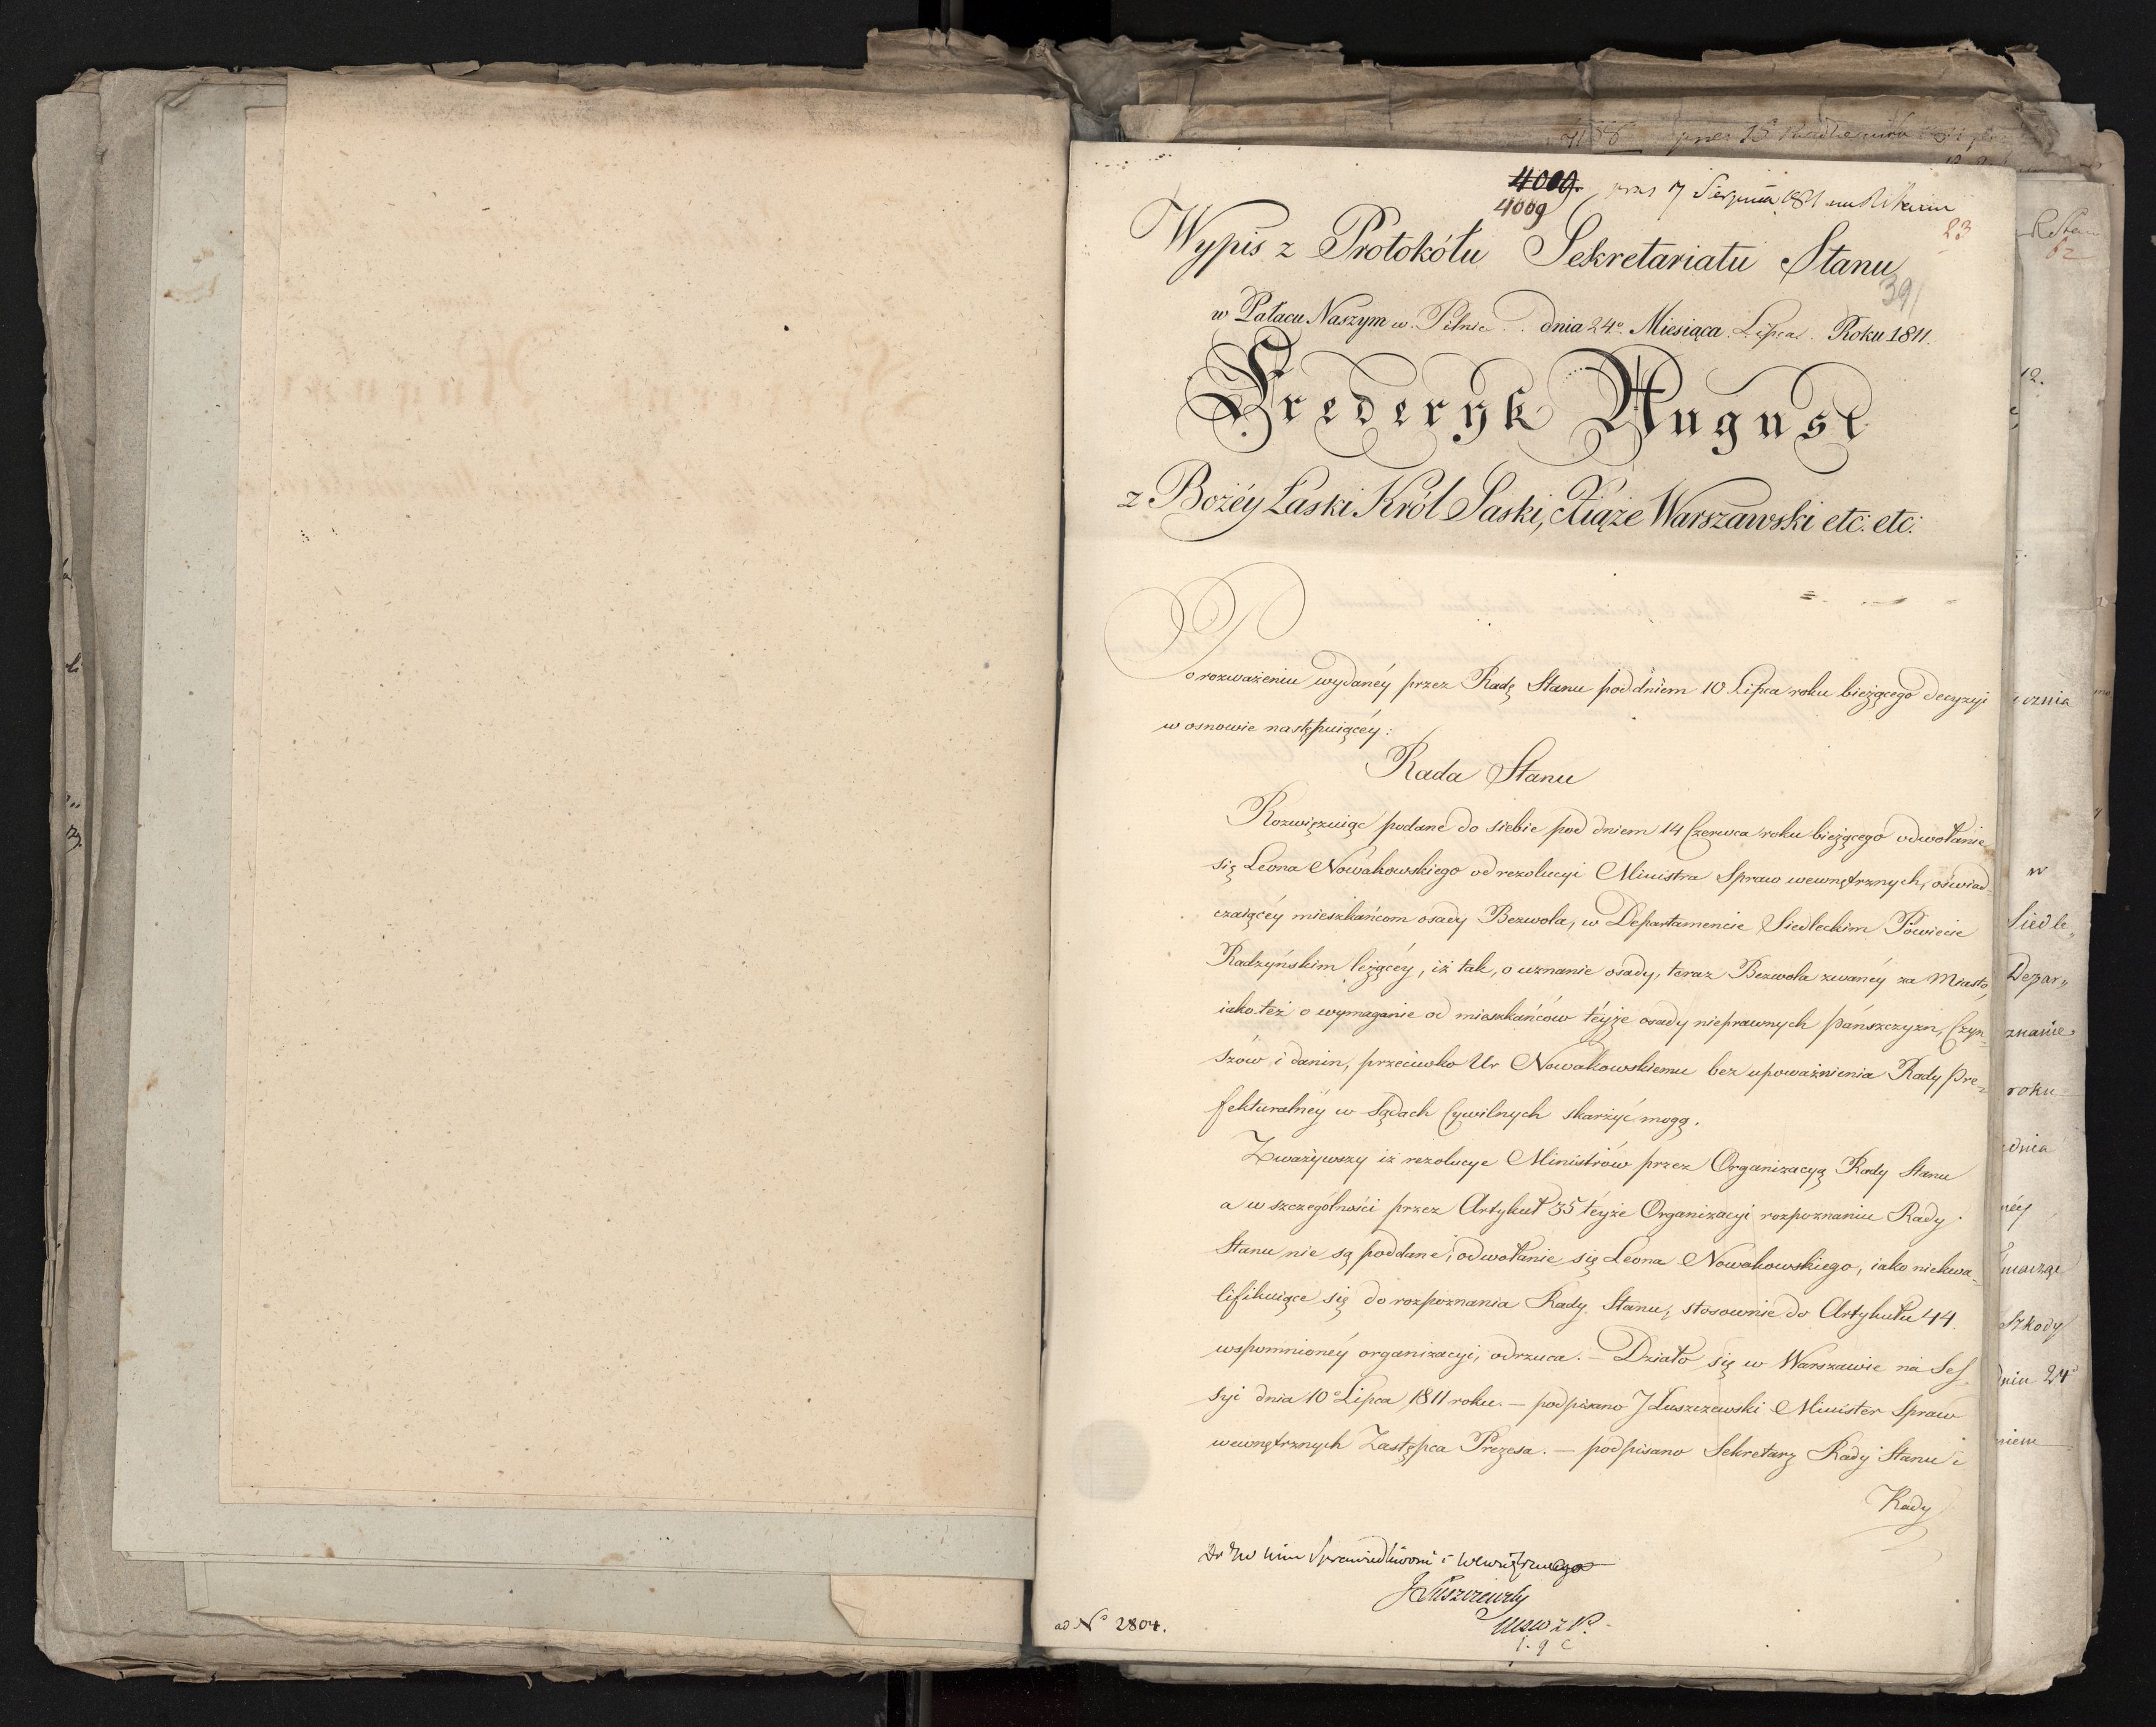 4009.
4009
23
Wypis z Protokółu Sekretariatu Stanu
391
w Pałacu Naszym w Pilnic dnia 24º Miesiąca Lipca Roku 1811.
Frederyk August
z Bożéy Łaski Król Saski, Xiąże Warszawski etc: etc:
Po rozważeniu wydanéy przez Radę Stanu pod dniem 10 Lipca roku bieżącego decyzyi
w osnowie następuiącéy:
Rada Stanu
Rozwięzuiąc podane do siebie pod dniem 14 Czerwca roku bieżącego odwołanie
się Leona Nowakowskiego od rezolucyi Ministra Spraw wewnętrznych, oświad-
czaiącéy mieszkańcom osady Bezwola, w Departamencie Siedleckim Powiecie
Radzyńskim leżącéy, iż tak, o uznanie osady, teraz Bezwola zwanéy za Miasto,
iako też o wymaganie od mieszkańców téyże osady nieprawnych pańszczyzn, Czyn-
szów i danin, przeciwko Ur Nowakowskiemu bez upoważnienia Rady Pre-
fekturalnéy w Sądach Cywilnych skarżyć mogą.
Zważywszy iż rezolucye Ministrów przez Organizacyą Rady Stanu
a w szczególności przez Artykuł 35 téyże Organizacyi rozpoznaniu Rady
Stanu nie są poddane, odwołanie się Leona Nowakowskiego, iako niekwa-
lifikuiące się do rozpoznania Rady Stanu, stosownie do Artykułu 44
wspomnionéy organizacyi, odrzuca. – Działo się w Warszawie na Ses-
syi dnia 10º Lipca 1811 roku. – podpisano J Łuszczewski Minister Spraw
wewnętrznych Zastępca Prezesa. – podpisano Sekretarz Rady Stanu i
Rady
J Łuszczewski
ad Nº 2804.